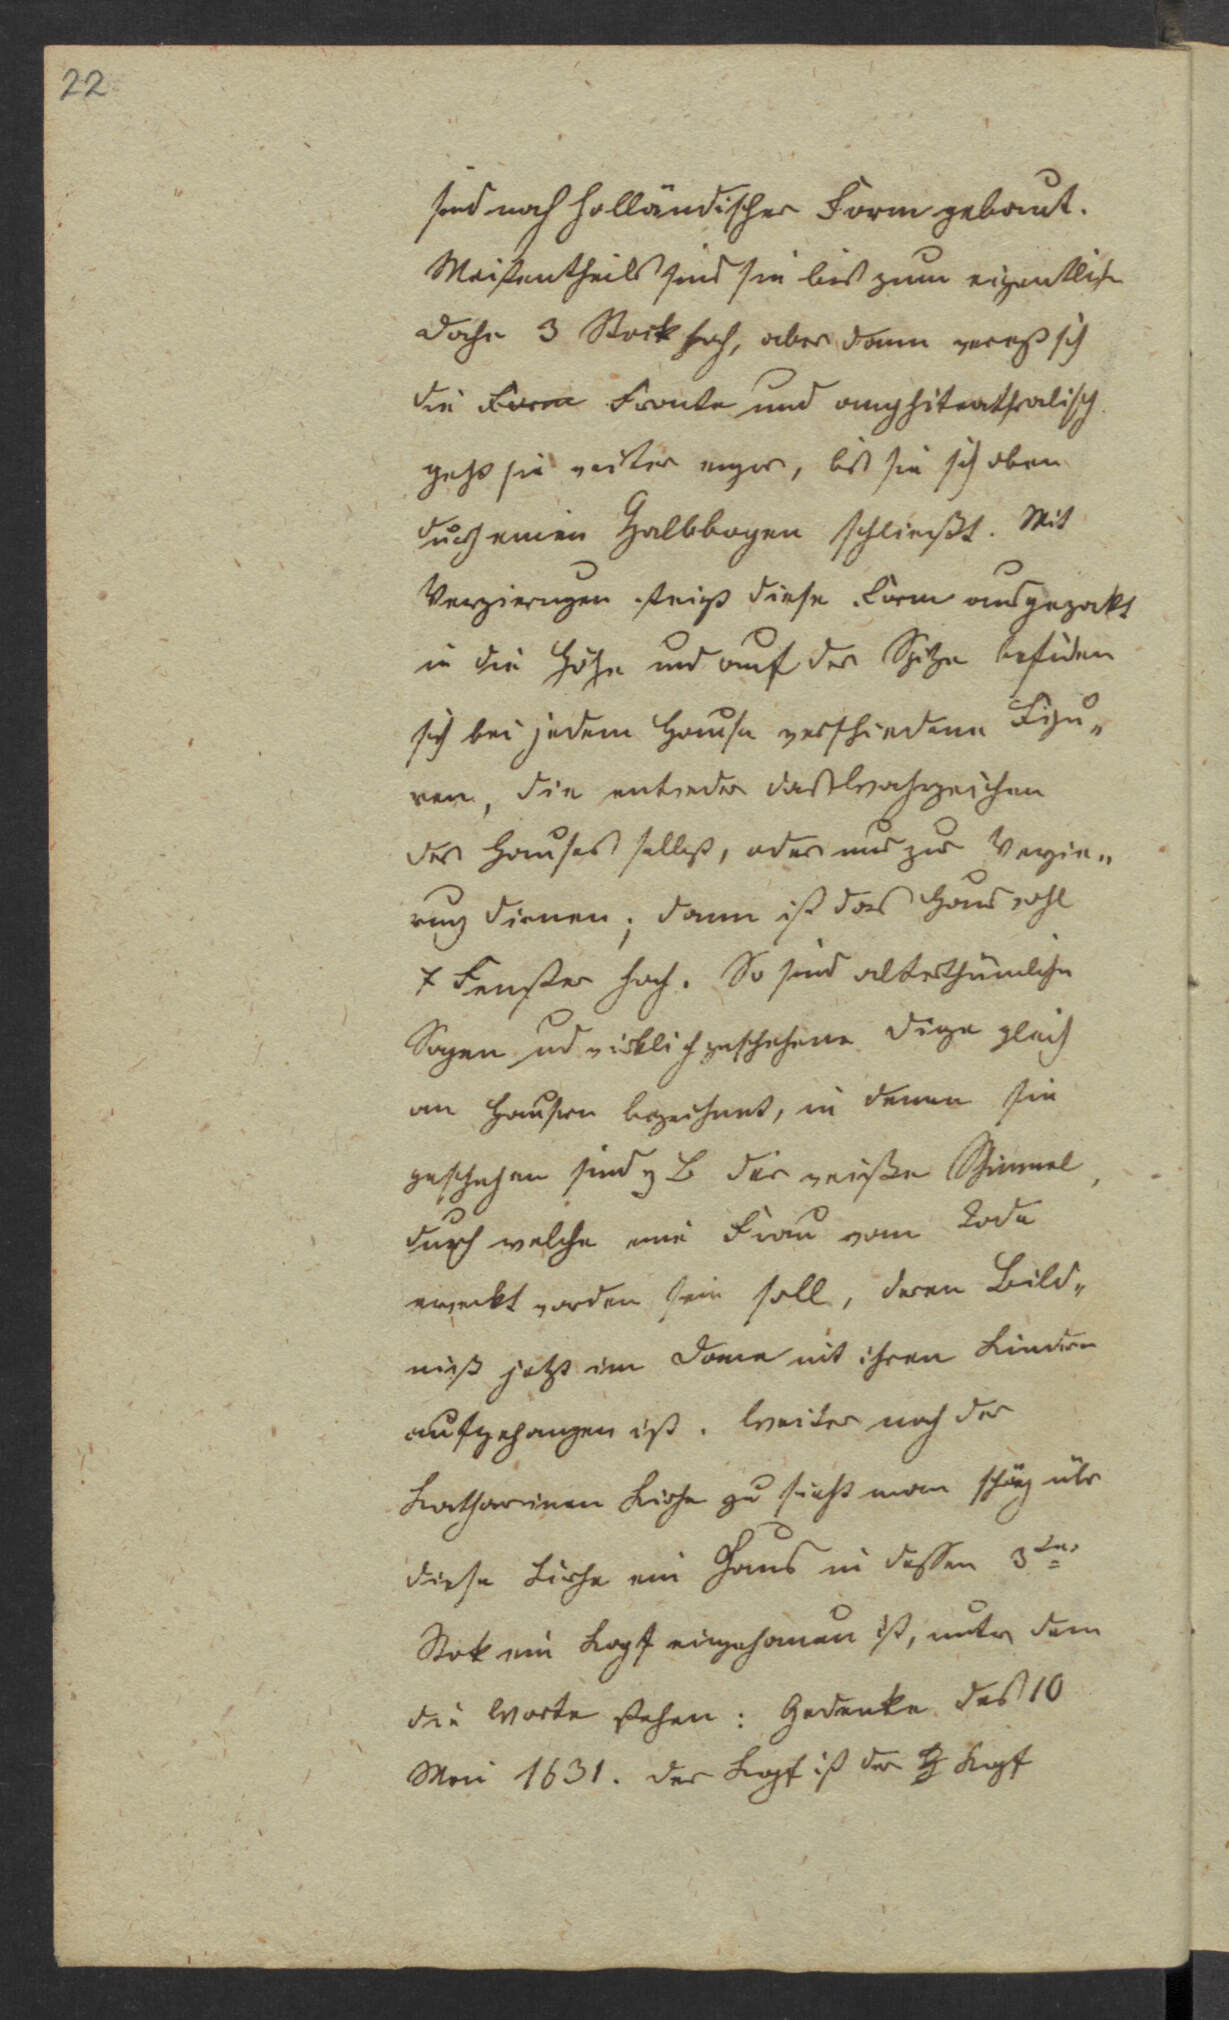 22
sind nach holländischer Form gebaut.
Meistentheils sind sie bis zum eigentlich
Dache 3 Stock hoch, aber dann verengt sich
die Form Fronte und amphiteathralisch
geht sie weiter enger, bis sie sich oben
durch einen Halbbogen schließt. Mit
Verzierungen steigt diese Form ausgezakt
in die Höhe und auf der Spitze befinden
sich bei jedem Hause verschiedene Figu„
ren, die entweder das Wahrzeichen
des Hauses selbst, oder nur zur Verzie„
rung dienen; dann ist das Haus wohl
7 Fenster hoch. So sind alterthümliche
Sagen und wirklich geschehene Dinge gleich
an Hausern bezeichnet, in denen sie
geschehen sind z B der weiße Schimmel,
durch welche eine Frau vom Tode
erweckt worden sein soll, deren Bild„
niß jetzt im Dome mit ihren Kindern
aufgehangen ist. Weiter nach der
Katharinen Kirche zu sieht man schräg über
diese Kirche ein Haus in dessen 3ten
Stok ein Kopf eingehauen ist, unter dem
die Worte stehen: Gedenke des 10
Mai 1631. Der Kopf ist der Kopf